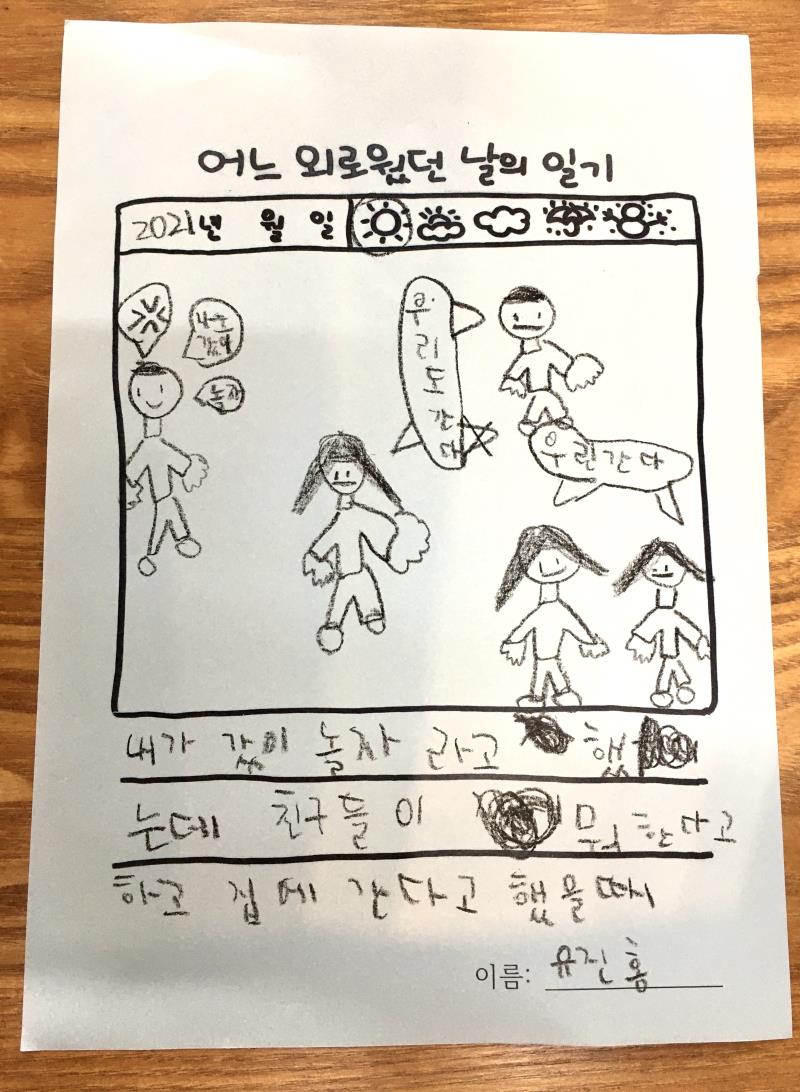 어느 외로웠던 날의 일기
2021년 월 일
나도
같이
놀자
우리도간다
우린간다
내가 같이 놀자 라고 했
는데 친구들이 뭐한다고
하고 집에 간다고 했을때
이름: 유진홍